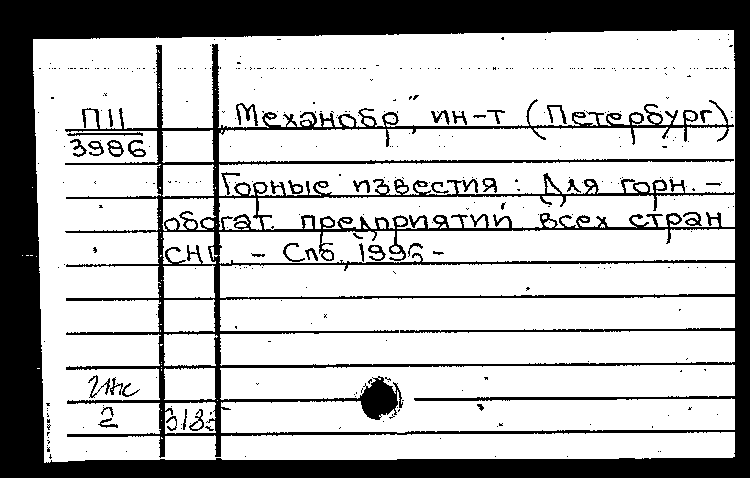 П11 „Механобр", ин-т (Петербург)
3986
Горные известия: Для горн.-
обогат. предприятий всех стран
СНГ. - Спб., 1996-
2